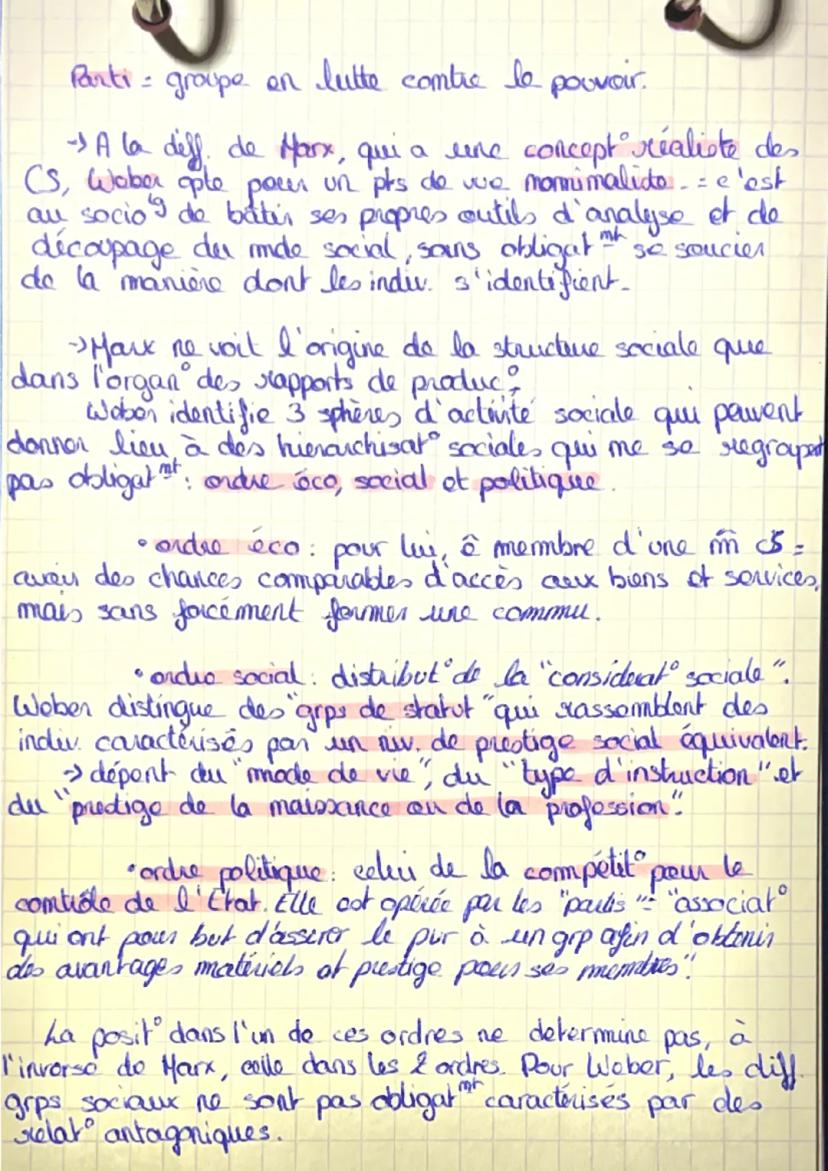 Parti = groupe en lutte contre le pouvoir.
→ A la diff. de Marx, qui a une concept° réaliste des
CS, Weber opte pour un pts de vue nominaliste. = c'est
au socio^g de bâtir ses propres outils d'analyse et de
découpage du mde social, sans obligat^mt se soucier
de la manière dont les indiv. s'identifient.
→ Marx ne voit l'origine de la structure sociale que
dans l'organ° des rapports de produc°.
Weber identifie 3 sphères d'activité sociale qui peuvent
donner lieu à des hierarchisat° sociales qui ne se regroupent
pas obligat^mt : ordre éco, social et politique.
• ordre éco : pour lui, ê membre d'une m̂ CS =
avoir des chances comparables d'accès aux biens et services,
mais sans forcément former une commu.
• ordre social : distribut° de la "considérat° sociale".
Weber distingue des "grps de statut" qui rassemblent des
indiv. caractérisés par un niv. de prestige social équivalent.
→ dépent du "mode de vie", du "type d'instruction" et
du "prestige de la naissance ou de la profession".
• ordre politique : celui de la compétit° pour le
contrôle de l'Etat. Elle est opérée par les "partis" = "associat°
qui ont pour but d'assrer le pvr à un grp afin d'obtenir
des avantages matériels et prestige pour ses membres".
La posit° dans l'un de ces ordres ne détermine pas, à
l'inverse de Marx, celle dans les 2 ordres. Pour Weber, les diff.
grps sociaux ne sont pas obligat^mt caractérisés par des
relat° antagoniques.